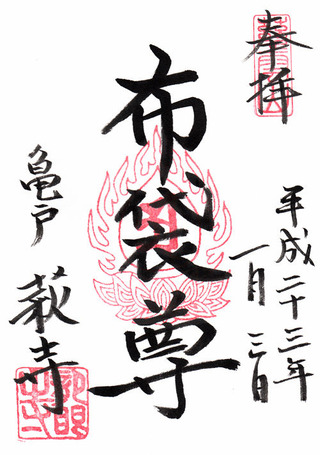 奉拝
平成二十三年
一月三日
布袋尊
亀戸
萩寺